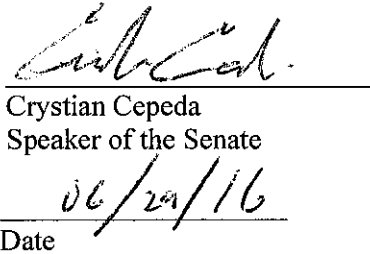 Crystian Cepeda
Speaker of the Senate
06/29/16
Date